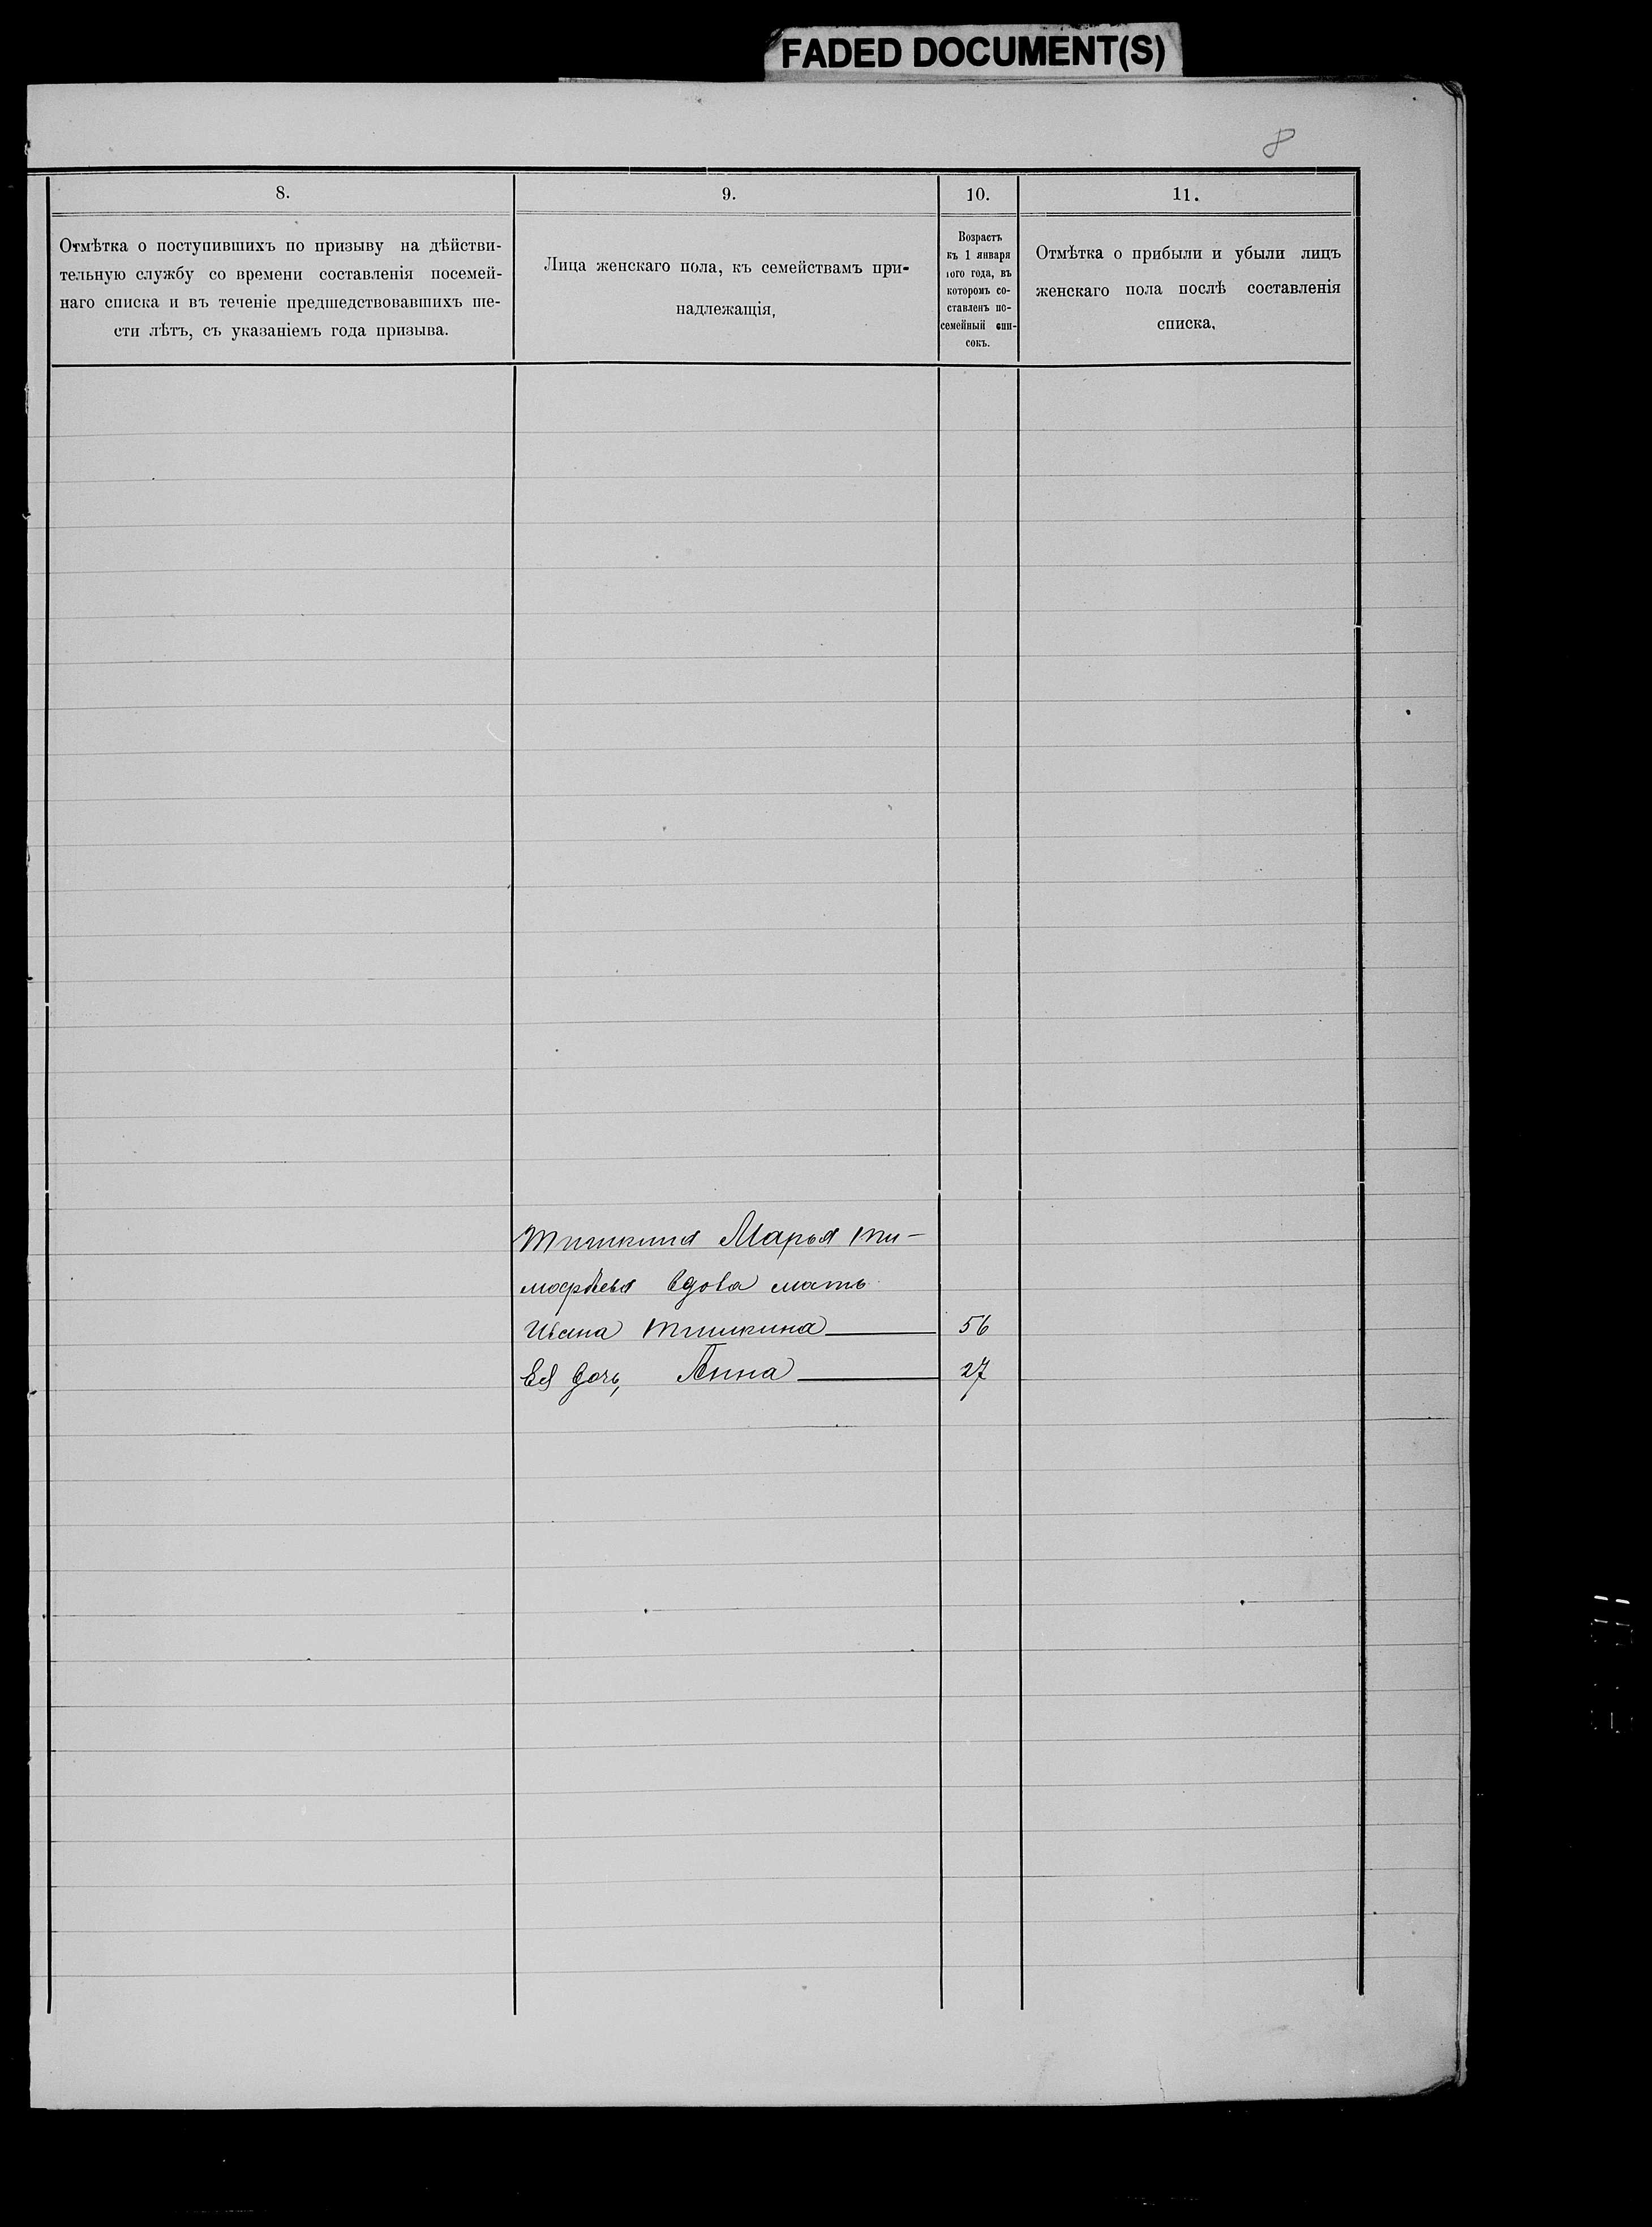 FADED DOCUMENT(S)
8
8.
Отмѣтка о поступившихъ по призыву на дѣйстви-
тельную службу со времени составленія посемей-
наго списка и въ теченіе предшедствовавшихъ ше-
сти лѣтъ, съ указаніемъ года призыва.
9.
Лица женскаго пола, къ семействамъ при-
надлежащія,
10.
Возрастъ
къ 1 января
того года, въ
которомъ со-
ставленъ по-
семейный спи-
сокъ.
11.
Отмѣтка о прибыли и убыли лицъ
женскаго пола послѣ составленія
списка.
Тишкина Марья Ти-
мофѣева вдова мать
Ивана Тишкина 56
Ея дочь, Анна 27